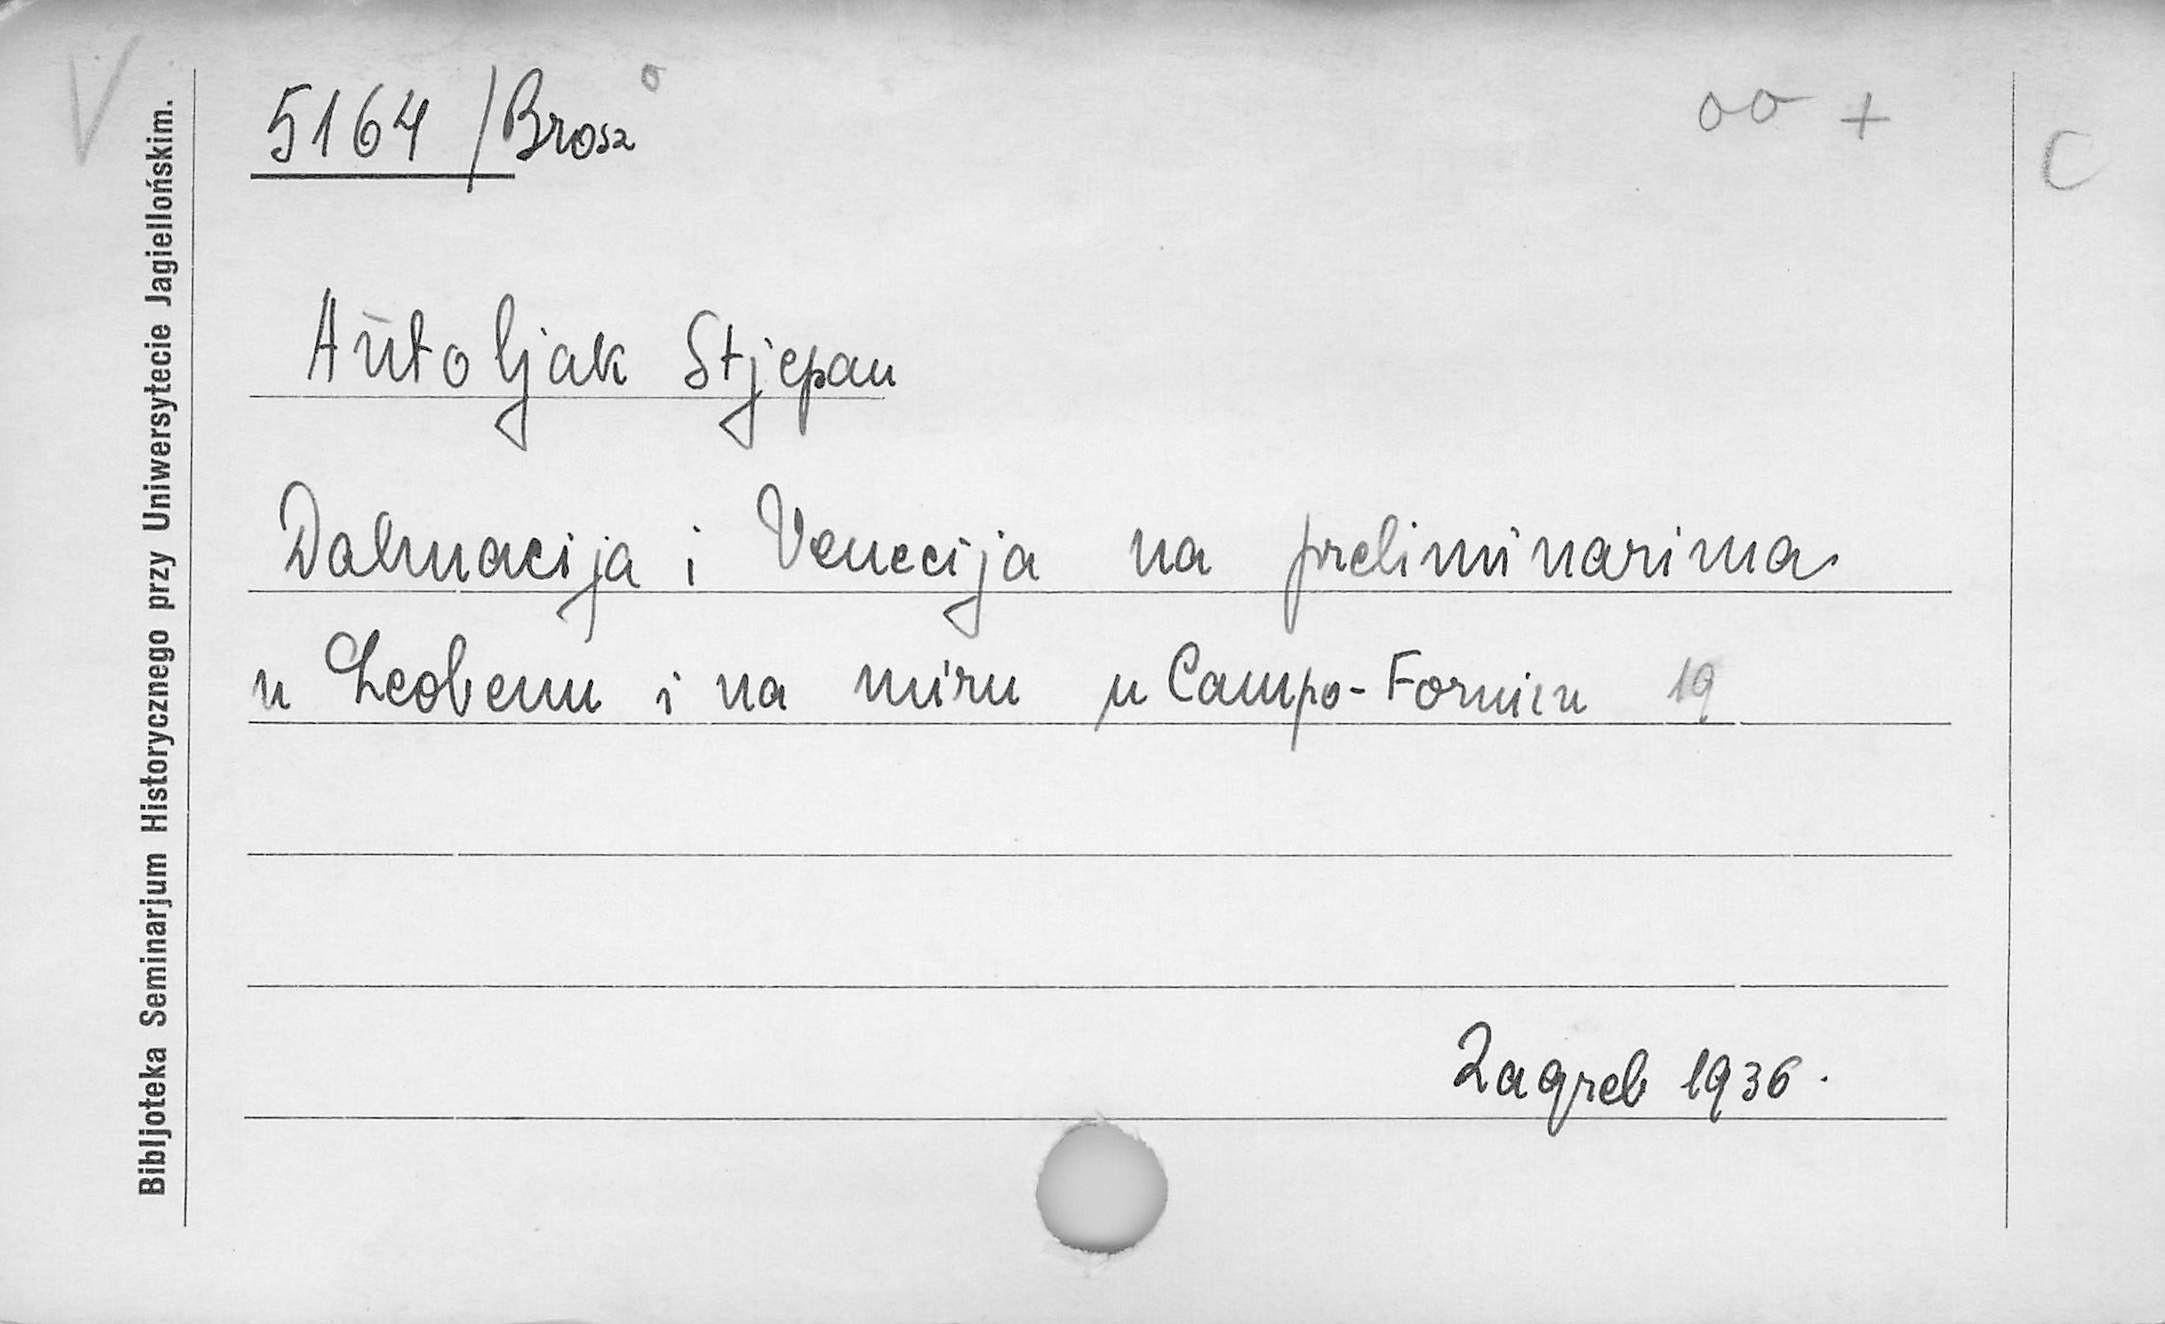 V
5164 / Brosz o
oo +
C
Antoljak Stjepan
Dalmacija i Venecija na preliminarima
u Leobenu i na miru u Campo-Formiu 19
Zagreb 1936.
Bibljoteka Seminarjum Historycznego przy Uniwersytecie Jagiellońskim.